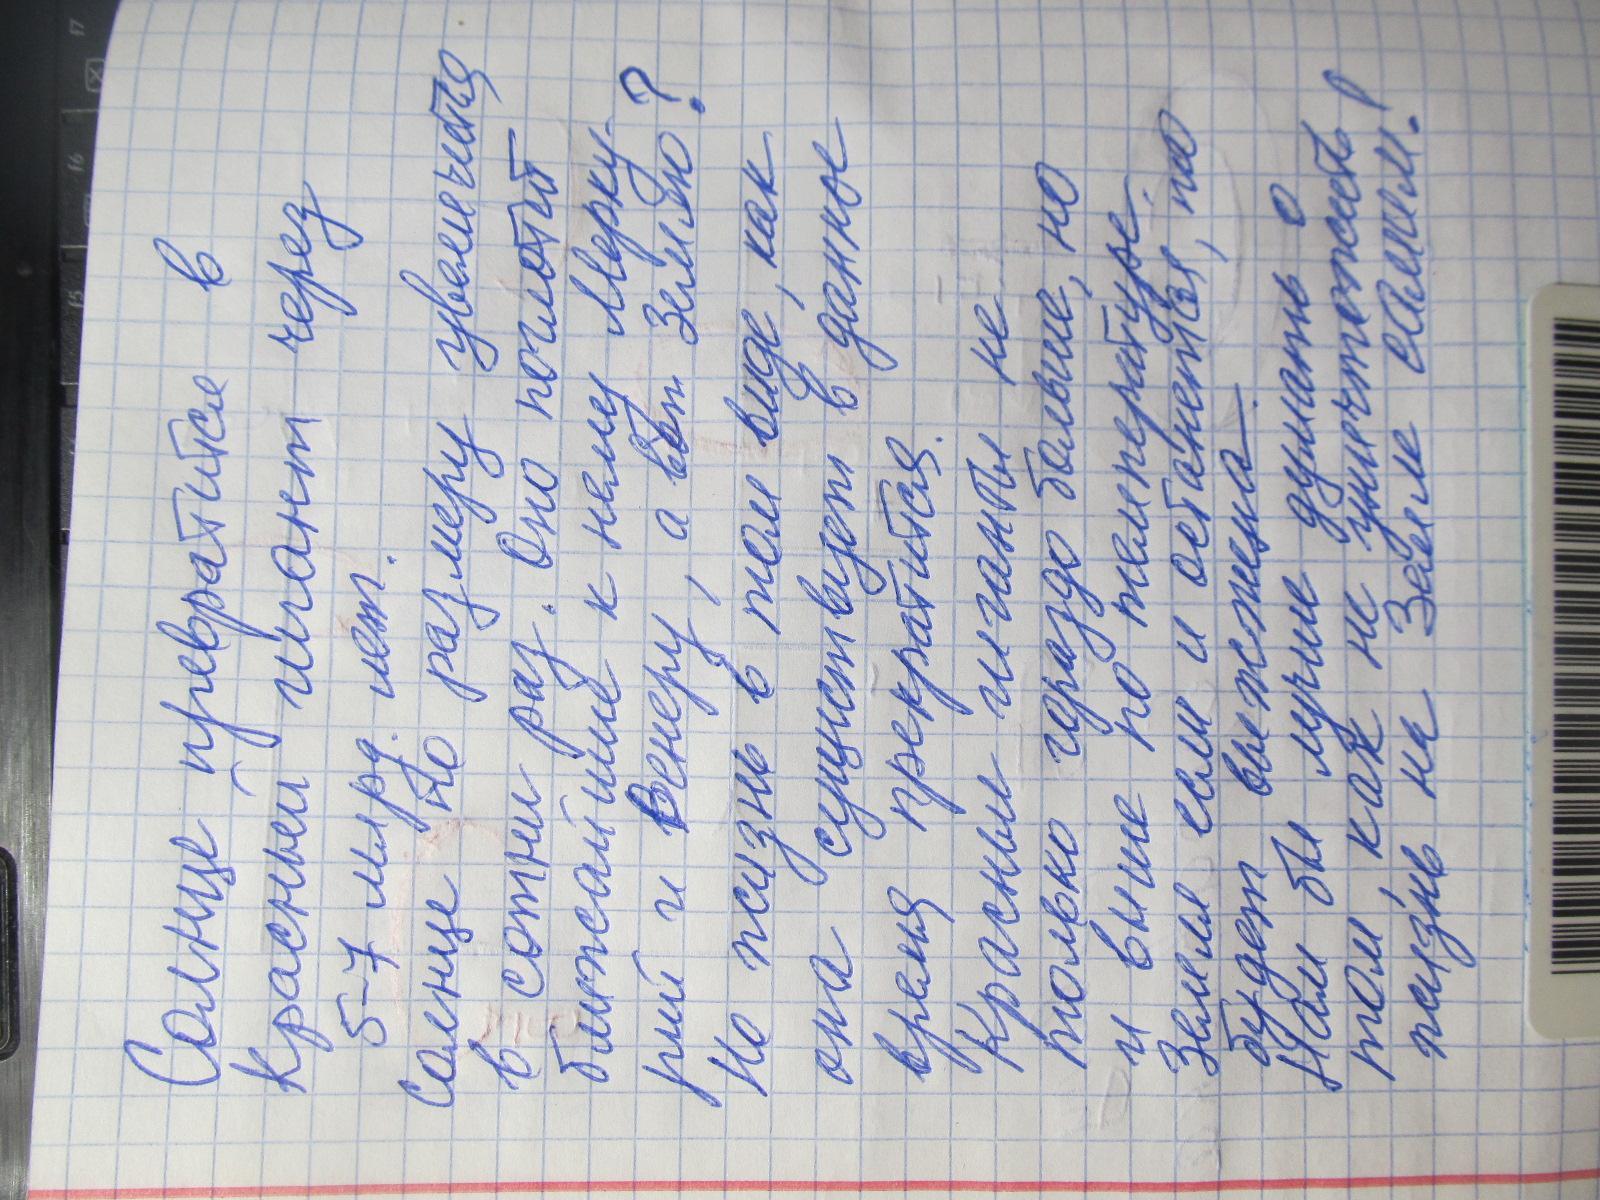 Солнце превратится в
Красный гигант через
5-7 млрд. лет.
Солнце по размеру увеличется
в сотни раз. Оно поглотит
ближайшие к нему Мерку-
рий и Венеру, а вот Землю?
Но жизнь в том виде, как
она существует в данное
время прекратится.
Красные гиганты не
только гораздо больше, но
и выше по температуре.
Земля если и останется, то
будет выжжена.
Нам бы лучше думать о
том, как не уничтожить
жизнь на Земле самим!
F5
F6
F7